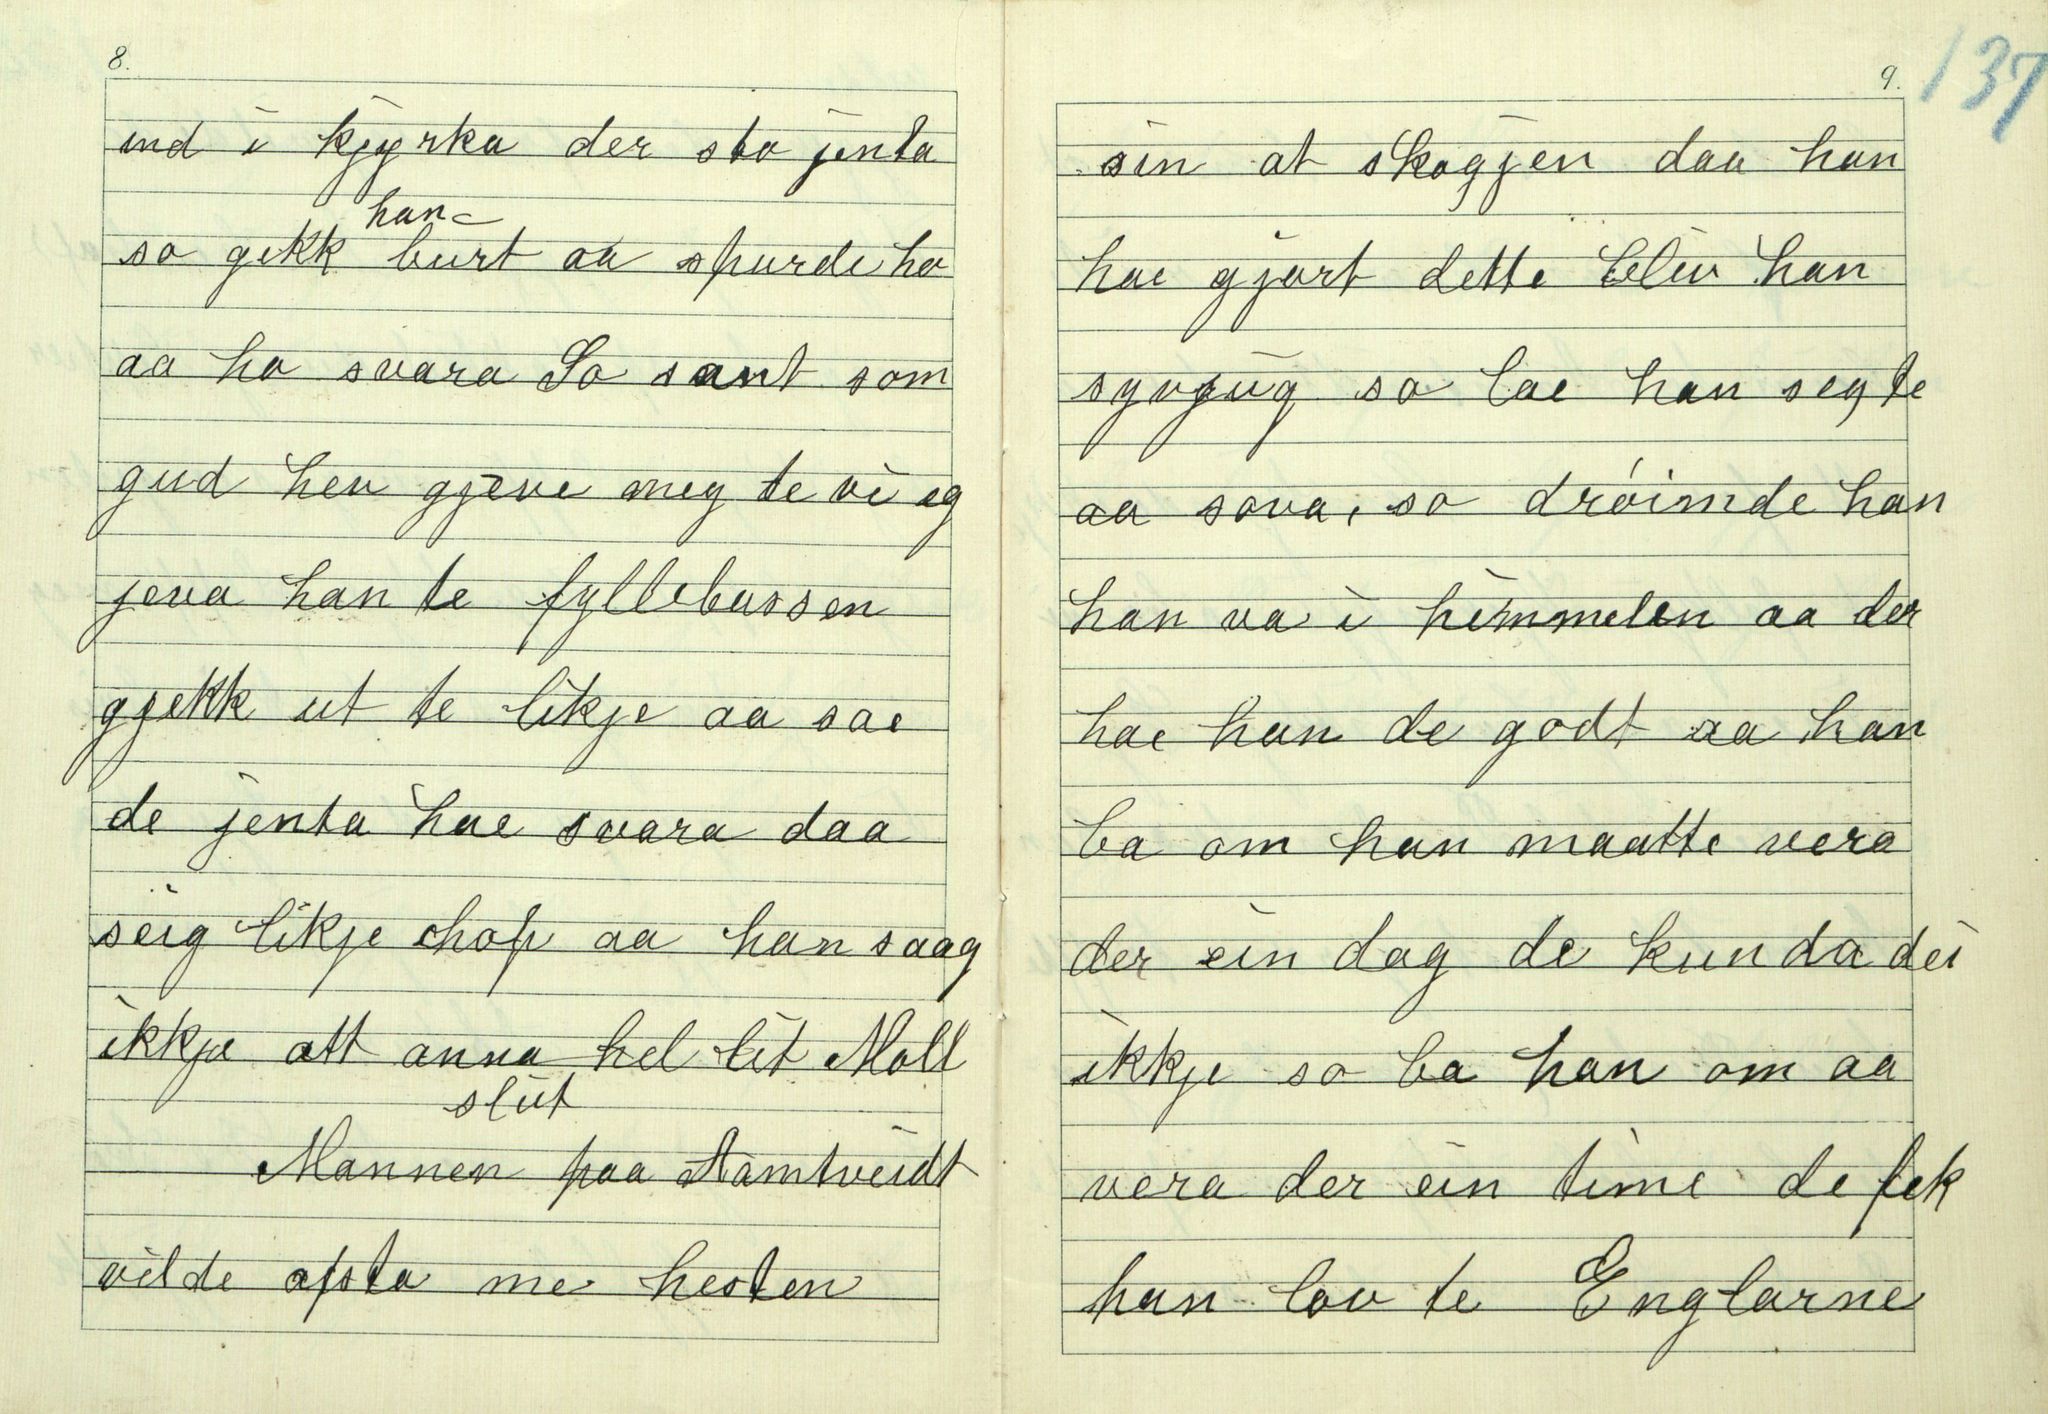 8.
ind i kjyrka der sto jenta
han
so gekk burt aa spurde ho
aa ho svara So sant som
gud hev gjeve meg te vi eg
jeva han te fyllebussen
gjekk ut te likje aa sae
de jenta hae svara daa
seig likje ihop aa han saag
ikkje att anna hel lit Moll
slut
Mannen paa Aamtveidt
vilde afsta me hesten
9.
137
sin at skogjen daa han
hae gjort dette blév han
syvjug so lae han seg te
aa sova, so dróimde han
han va i himmelen aa der
hae han de godt aa han
ba om han maatte vera
der ein dag de kunda dei
ikkje so ba han om aa
vera der ein time de fek
han lov te Englarne